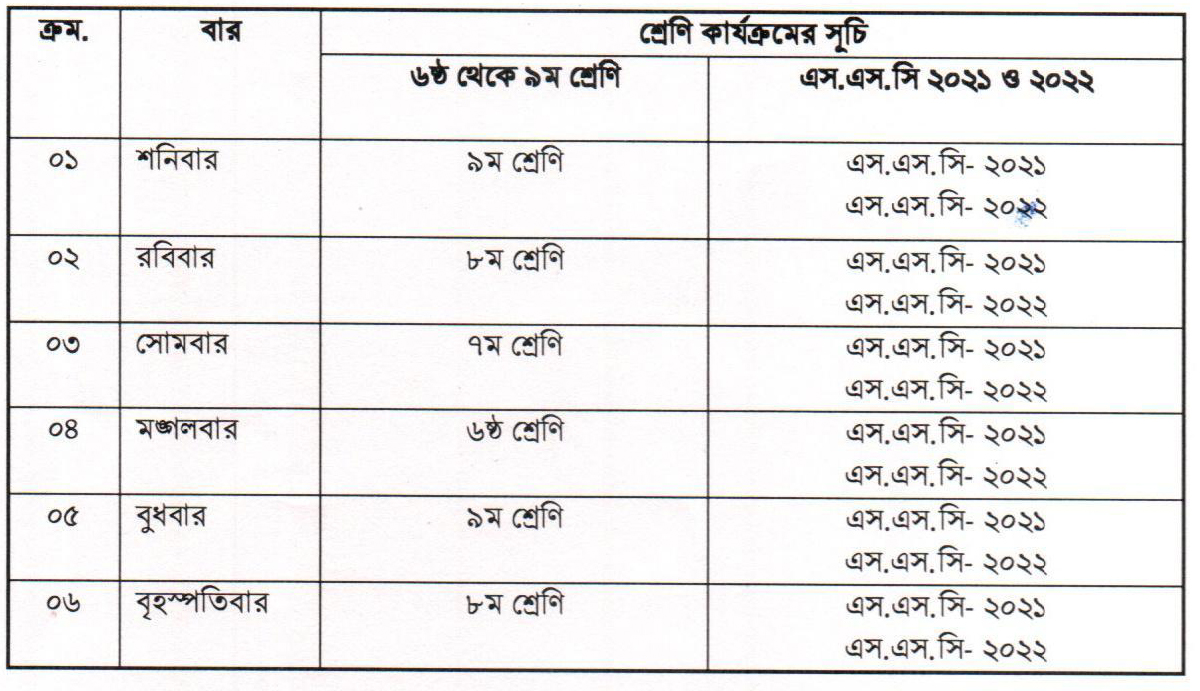 ক্রম. বার শ্রেণি কার্যক্রমের সূচি
৬ষ্ঠ থেকে ৯ম শ্রেণি এস.এস.সি ২০২১ ও ২০২২
০১ শনিবার ৯ম শ্রেণি এস.এস.সি- ২০২১
এস.এস.সি- ২০২২
০২ রবিবার ৮ম শ্রেণি এস.এস.সি- ২০২১
এস.এস.সি- ২০২২
০৩ সোমবার ৭ম শ্রেণি এস.এস.সি- ২০২১
এস.এস.সি- ২০২২
০৪ মঙ্গলবার ৬ষ্ঠ শ্রেণি এস.এস.সি- ২০২১
এস.এস.সি- ২০২২
০৫ বুধবার ৯ম শ্রেণি এস.এস.সি- ২০২১
এস.এস.সি- ২০২২
০৬ বৃহস্পতিবার ৮ম শ্রেণি এস.এস.সি- ২০২১
এস.এস.সি- ২০২২